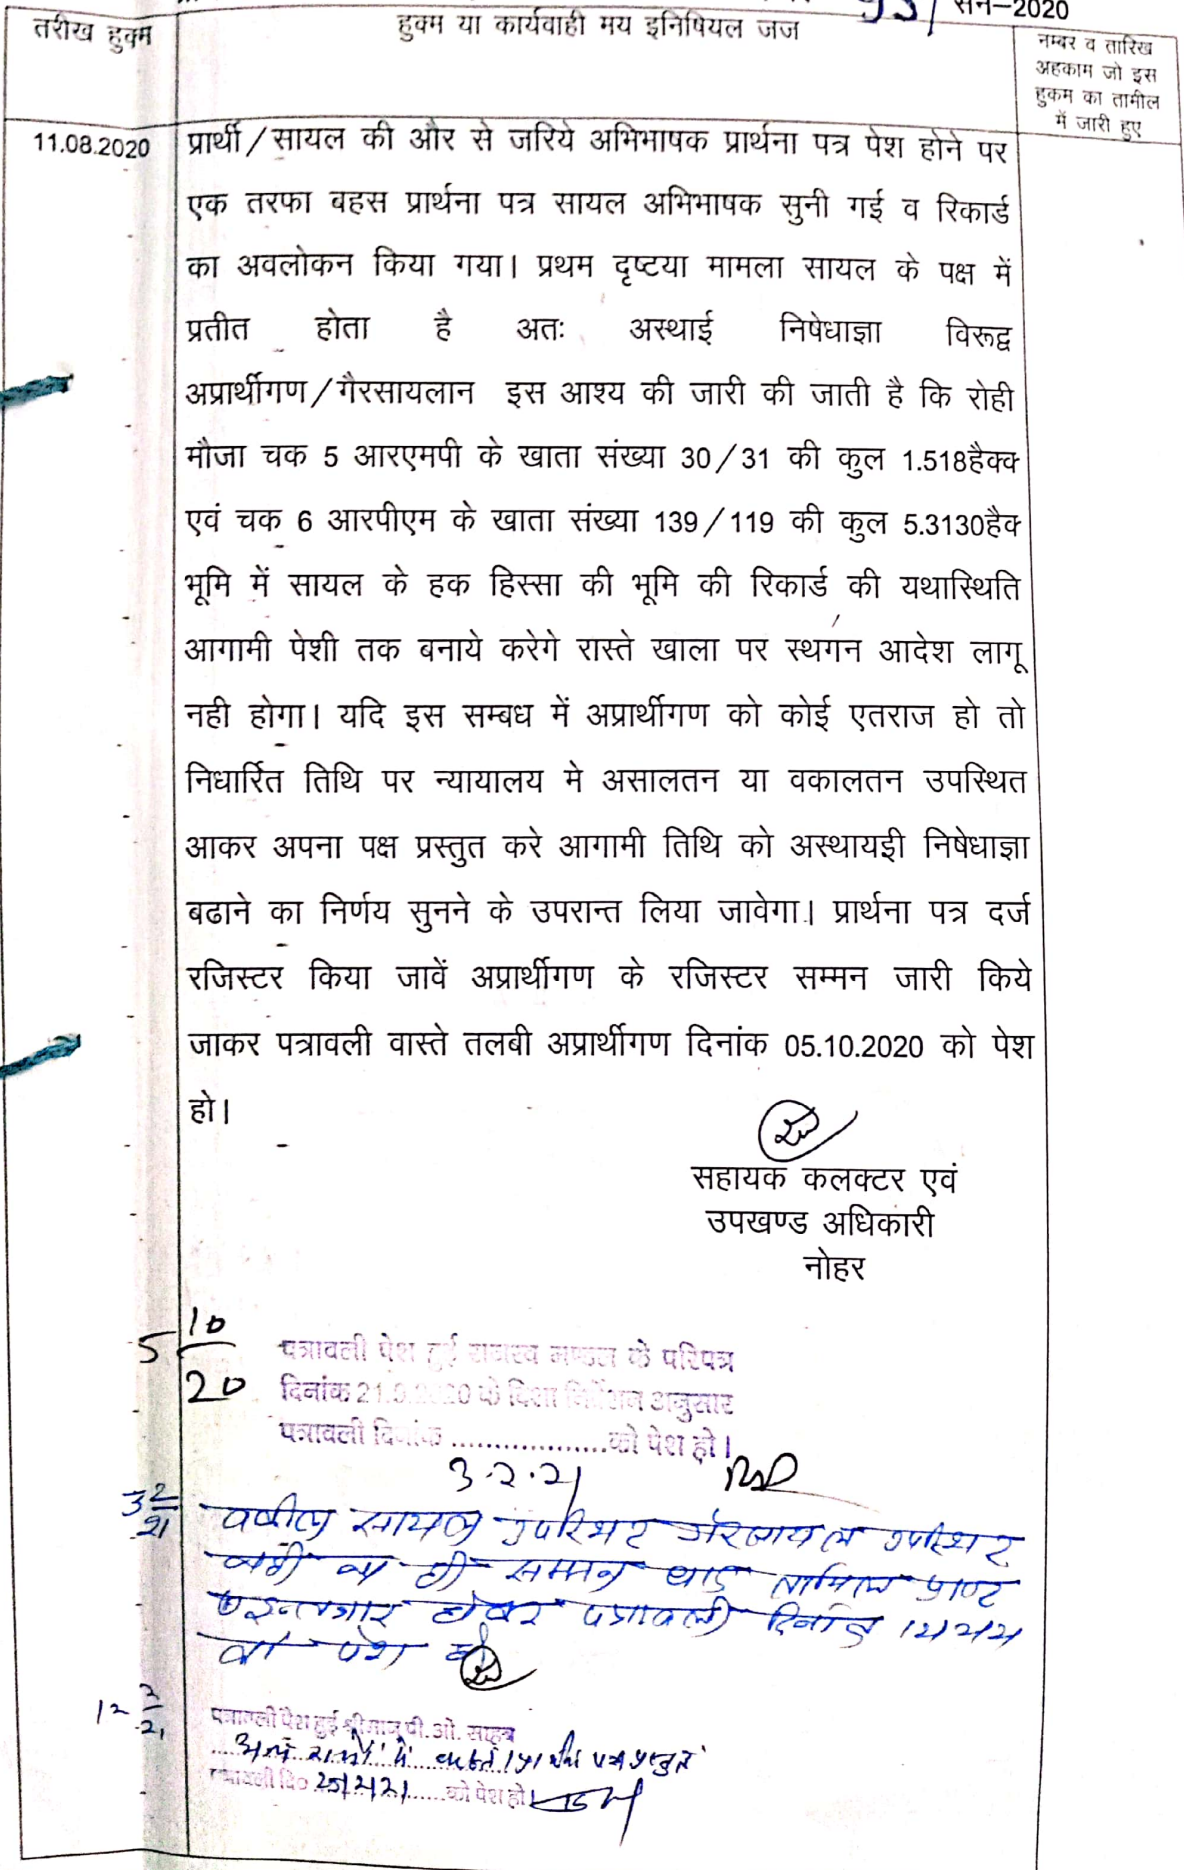 सन–2020
तरीख हुक्म
हुक्म या कार्यवाही मय इनिषियल जज
नम्बर व तारिख
अहकाम जो इस
हुकम का तामील
में जारी हुए
11.08.2020
प्रार्थी/सायल की और से जरिये अभिभाषक प्रार्थना पत्र पेश होने पर
एक तरफा बहस प्रार्थना पत्र सायल अभिभाषक सुनी गई व रिकार्ड
का अवलोकन किया गया। प्रथम दृष्टया मामला सायल के पक्ष में
प्रतीत होता है अतः अस्थाई निषेधाज्ञा विरूद्व
अप्रार्थीगण/गैरसायलान इस आश्य की जारी की जाती है कि रोही
मौजा चक 5 आरएमपी के खाता संख्या 30/31 की कुल 1.518हैक्व
एवं चक 6 आरपीएम के खाता संख्या 139/119 की कुल 5.3130हैक्
भूमि में सायल के हक हिस्सा की भूमि की रिकार्ड की यथास्थिति
आगामी पेशी तक बनाये करेगे रास्ते खाला पर स्थगन आदेश लागू
नही होगा। यदि इस सम्बध में अप्रार्थीगण को कोई एतराज हो तो
निधार्रित तिथि पर न्यायालय मे असालतन या वकालतन उपस्थित
आकर अपना पक्ष प्रस्तुत करे आगामी तिथि को अस्थायइी निषेधाज्ञा
बढाने का निर्णय सुनने के उपरान्त लिया जावेगा। प्रार्थना पत्र दर्ज
रजिस्टर किया जावें अप्रार्थीगण के रजिस्टर सम्मन जारी किये
जाकर पत्रावली वास्ते तलबी अप्रार्थीगण दिनांक 05.10.2020 को पेश
हो।
सहायक कलक्टर एवं
उपखण्ड अधिकारी
नोहर
5 10
20
पत्रावली पेश हुई राजस्व मण्डल के परिपत्र
दिनांक 21.9.2020 के दिशा निर्देशन अनुसार
पत्रावली दिनांक ...................को पेश हो।
3.2.21
3 2
21
वकील सायल उपस्थित गैरसायल उपस्थित
नही सम्मन बाद तामिल प्राप्त
पत्रावली दिनांक 12/2/21
को पेश हो
12 2
21
पत्रावली पेश हुई श्रीमान् पी.ओ. साहब
पत्रावली दि० 25/2/21 ......को पेश हो।